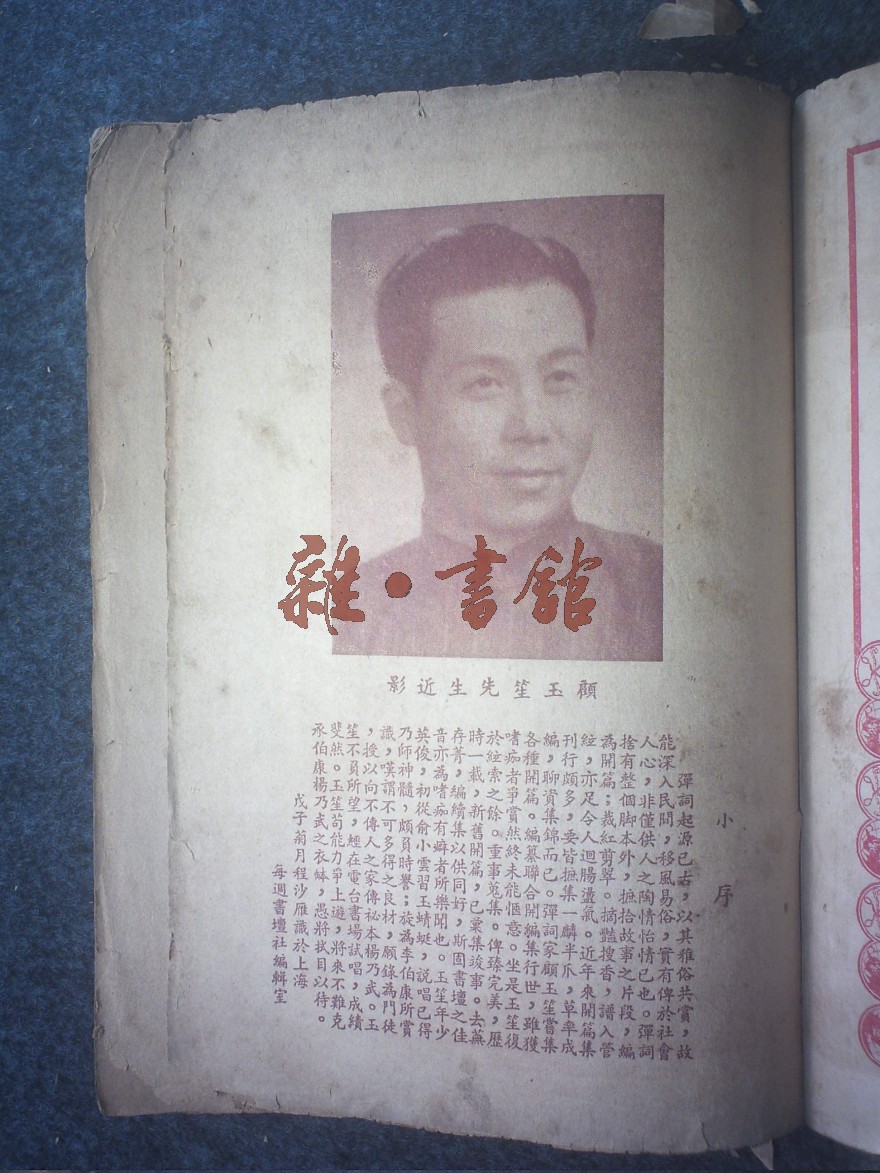 雜·書館
顧玉笙先生近影
小序
彈詞起源已古，以其雅俗共賞，故
能深入民間，移風易俗，實有俾於社會
人心，非僅供人之陶情怡情已也。彈詞
捨有整個脚本外，摭拾故事之片段，編
為開篇；裁紅剪翠。摘豔搜香，譜入管
絃，亦足令人迴腸盪氣。近年來開篇集
刊行頗多，要皆摭集一麟半爪，草率成
編，聊資集錦而已。彈詞家顧玉笙嘗集
各種開篇。編纂聯合開編集行世，雖獲
嗜痂者爭賞，然終未能愜意。坐是玉笙復
於絃索之餘。重事蒐集。俾臻完美，歷
時一載，新舊開篇，已彙集竣事。去蕪
存菁，編續集以供同好，斯固書壇之佳
音，亦為嗜痂有癖者所樂聞也。玉笙年少
英俊，初從俞小雲習玉蜻蜓，說唱已得
乃師神髓，頗員時譽；旋為李伯康所賞
識，嘆謂不可多得之良材，願錄為門徒
，授以向不傳人之家傳秘本楊乃武。玉
笙不負所望，經在電台書場試唱，成績
斐然。玉笙苟能力爭上遊，將來不難克
承伯康楊乃武之衣缽，愚將拭目以待。
戊子菊月程沙雁識於上海
每週書壇社編輯室